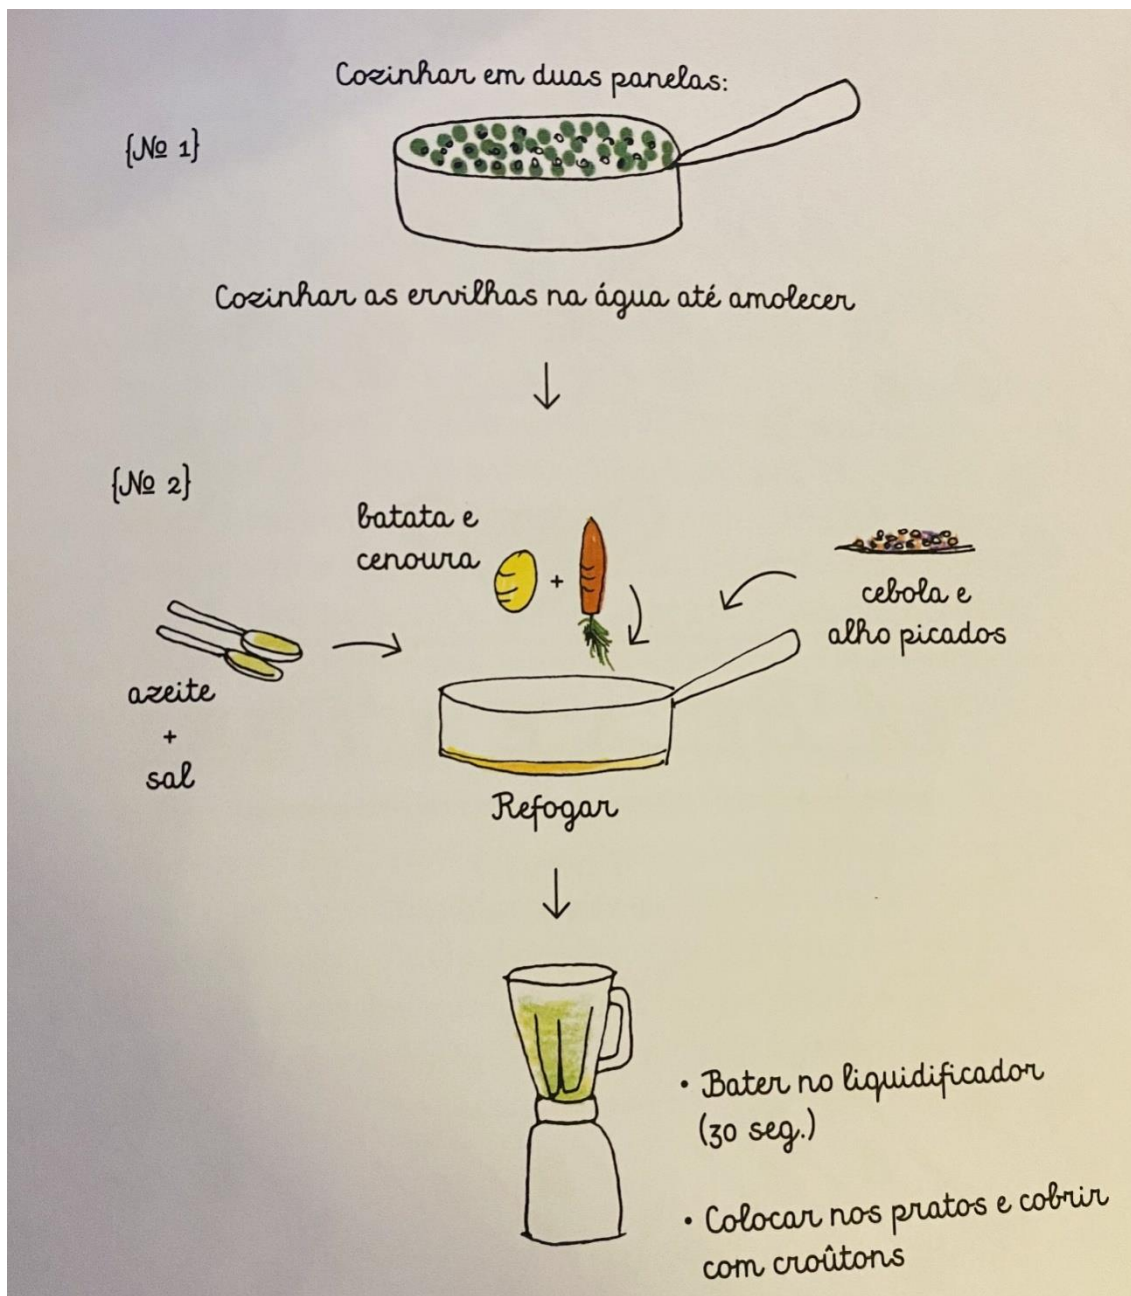 Cozinhar em duas panelas:
{Nº 1}
Cozinhar as ervilhas na água até amolecer
{Nº 2}
batata e
cenoura
+
cebola e
alho picados
azeite
+
sal
Refogar
• Bater no liquidificador
(30 seg.)
• Colocar nos pratos e cobrir
com croûtons